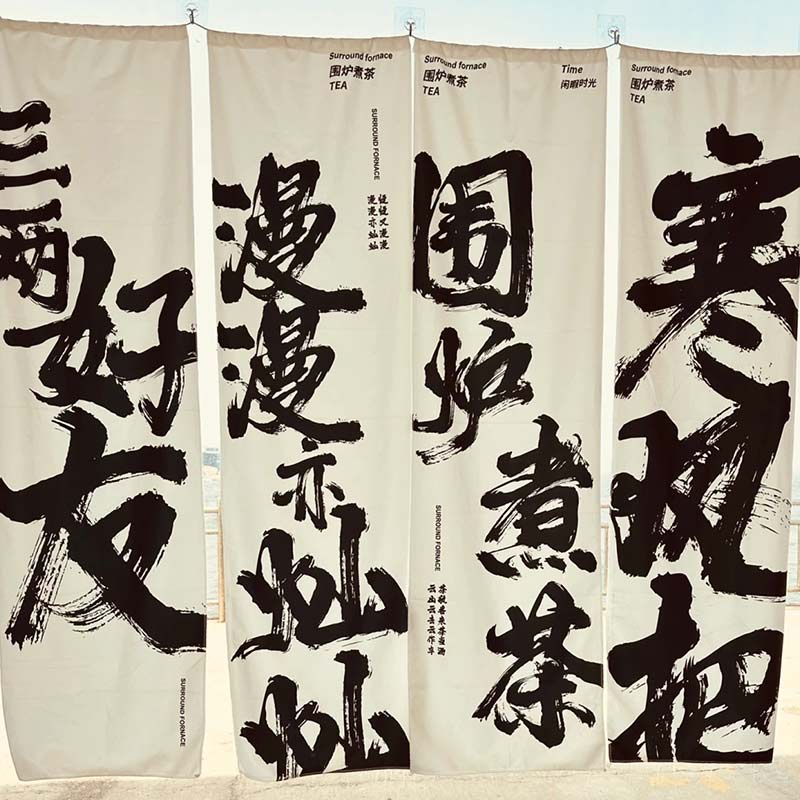 三两
好友
SURROUND FORNACE
Surround fornace
围炉煮茶
TEA
SURROUND FORNACE
慢慢又漫漫
漫漫亦灿灿
漫漫亦灿灿
Surround fornace
围炉煮茶
TEA
Time
闲暇时光
围炉
煮茶
SURROUND FORNACE
茶敬客来茶当酒
云山云去云作车
Surround fornace
围炉煮茶
TEA
寒风把